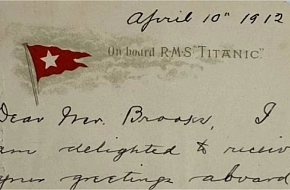 April 10th 1912
On board R.M.S. "TITANIC."
Dear Mr. Brooks, I
am delighted to receiv
your greetings aboard